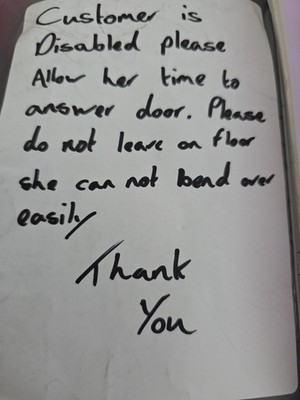 Customer is
Disabled please
Allow her time to
answer door. Please
do not leave on floor
she can not bend over
easily
Thank
You